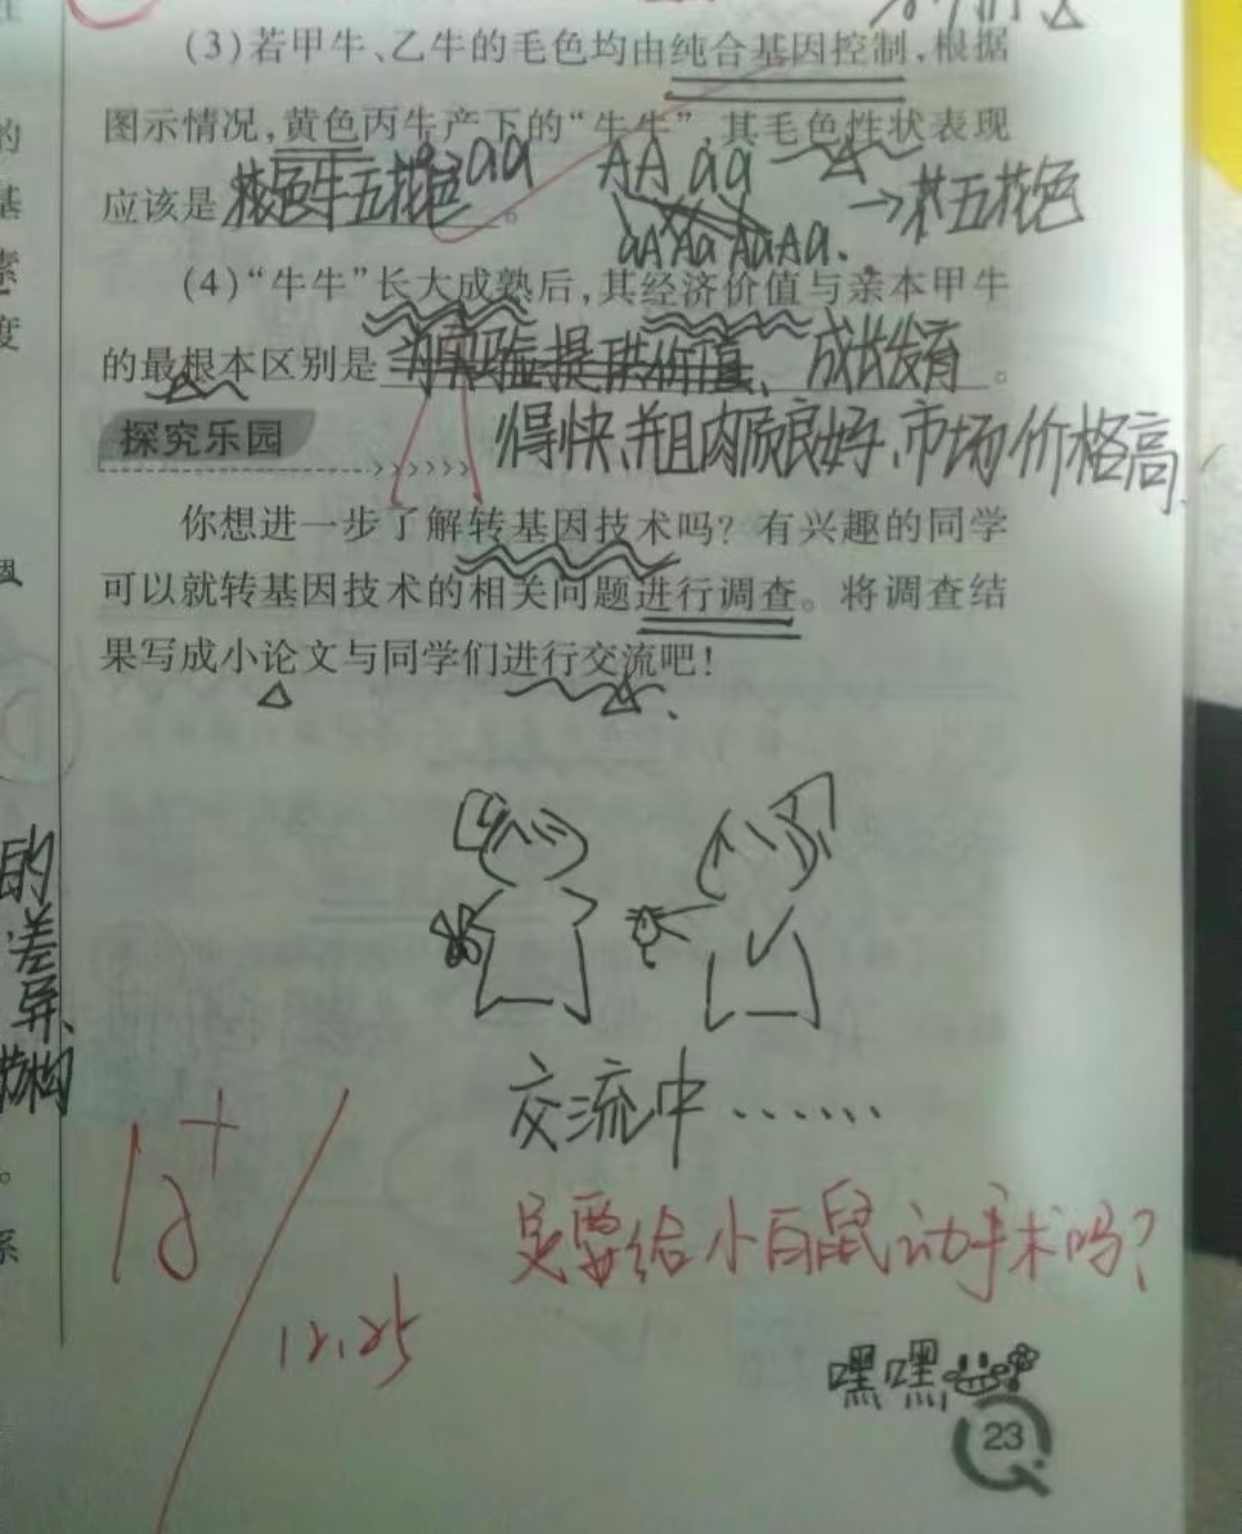 (3)若甲牛、乙牛的毛色均由纯合基因控制,根据
图示情况,黄色丙牛产下的“牛牛”,其毛色性状表现
aa AA aa
应该是 棕色牛五花色 。 →棕五花色
aA Aa Aa Aa.
(4)“牛牛”长大成熟后,其经济价值与亲本甲牛
的最根本区别是 成长发育 。
得快、并且肉质良好、市场价格高
探究乐园
你想进一步了解转基因技术吗?有兴趣的同学
可以就转基因技术的相关问题进行调查。将调查结
果写成小论文与同学们进行交流吧!
的
差
异、
结构
交流中······
是要给小白鼠动手术吗?
12.25
嘿嘿
23